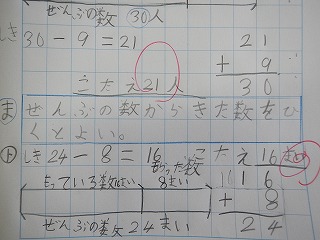 ぜんぶの数 30人
しき
30-9=21
21
+ 9
30
こたえ21人
ま ぜんぶの数からきた数をひ
くとよい。
ト しき24-8=16 こたえ16まい
もっている数はい もらった数
8まい
16
+ 8
24
ぜんぶの数24まい